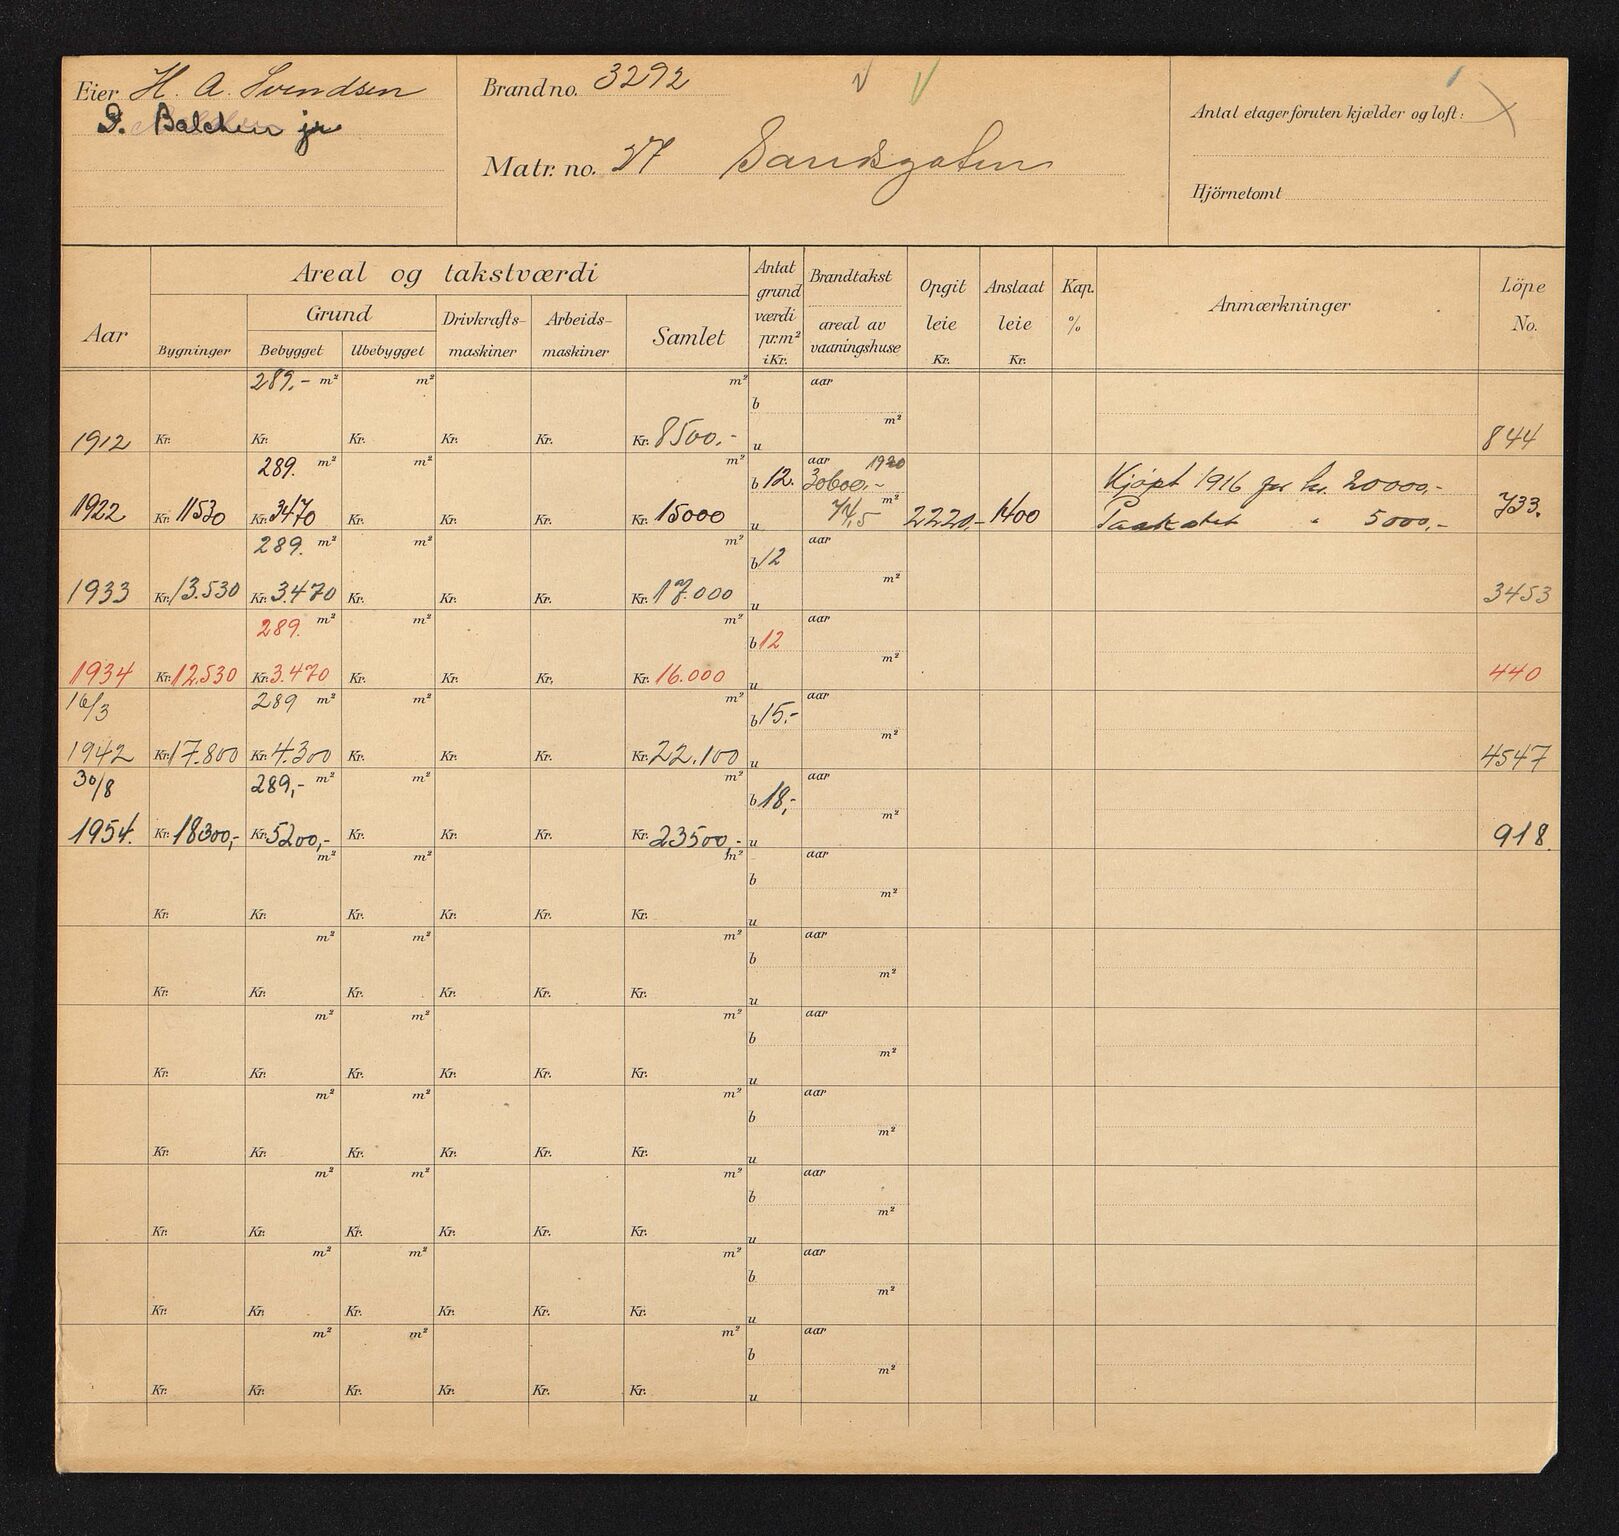 Eier H. A. Svendsen
Balchen jr
Brandno. 3292
Matr. no. 27 Sandsgaten
Antal etager foruten kjælder og loft:
Hjörnetomt
Aar
Areal og takstværdi
Bygninger
Grund
Bebygget
Ubebygget
Drivkrafts-
maskiner
Arbeids-
maskiner
Samlet
Antat
grund
værdi
pr.m²
i Kr.
Brandtakst
areal av
vaaningshuse
Opgit
leie
Kr.
Anslaat
leie
Kr.
Kap.
%
Anmærkninger
Löpe
No.
289.- m² m² m² b aar
1912 Kr. Kr. Kr. Kr. Kr. Kr. 8500.- u m² 844
289. m² m² m² b 12. aar 1920 30600.- Kjöpt 1916 for kr. 20000.-
1922 Kr. 11530 Kr. 3470 Kr. Kr. Kr. Kr. 15000 u 74,5 m² 2220.- 1400 Paakostet " 5000,- 733.
289. m² m² m² b 12 aar
1933 Kr. 13.530 Kr. 3.470 Kr. Kr. Kr. Kr. 17.000 u m² 3453
289. m² m² m² b 12 aar
1934 Kr. 12.530 Kr. 3.470 Kr. Kr. Kr. Kr. 16.000 u m² 440
16/3 289 m² m² m² b 15.- aar
1942 Kr. 17.800 Kr. 4.300 Kr. Kr. Kr. Kr. 22.100 u m² 4547
30/8 289,- m² m² m² b 18,- aar
1954. Kr. 18300,- Kr. 5200,- Kr. Kr. Kr. Kr. 23500,- u m² 918.
m² m² m² b aar
Kr. Kr. Kr. Kr. Kr. Kr. u m²
m² m² m² b aar
Kr. Kr. Kr. Kr. Kr. Kr. u m²
m² m² m² b aar
Kr. Kr. Kr. Kr. Kr. Kr. u m²
m² m² m² b aar
Kr. Kr. Kr. Kr. Kr. Kr. u m²
m² m² m² b aar
Kr. Kr. Kr. Kr. Kr. Kr. u m²
m² m² m² b aar
Kr. Kr. Kr. Kr. Kr. Kr. u m²
m² m² m² b aar
Kr. Kr. Kr. Kr. Kr. Kr. u m²